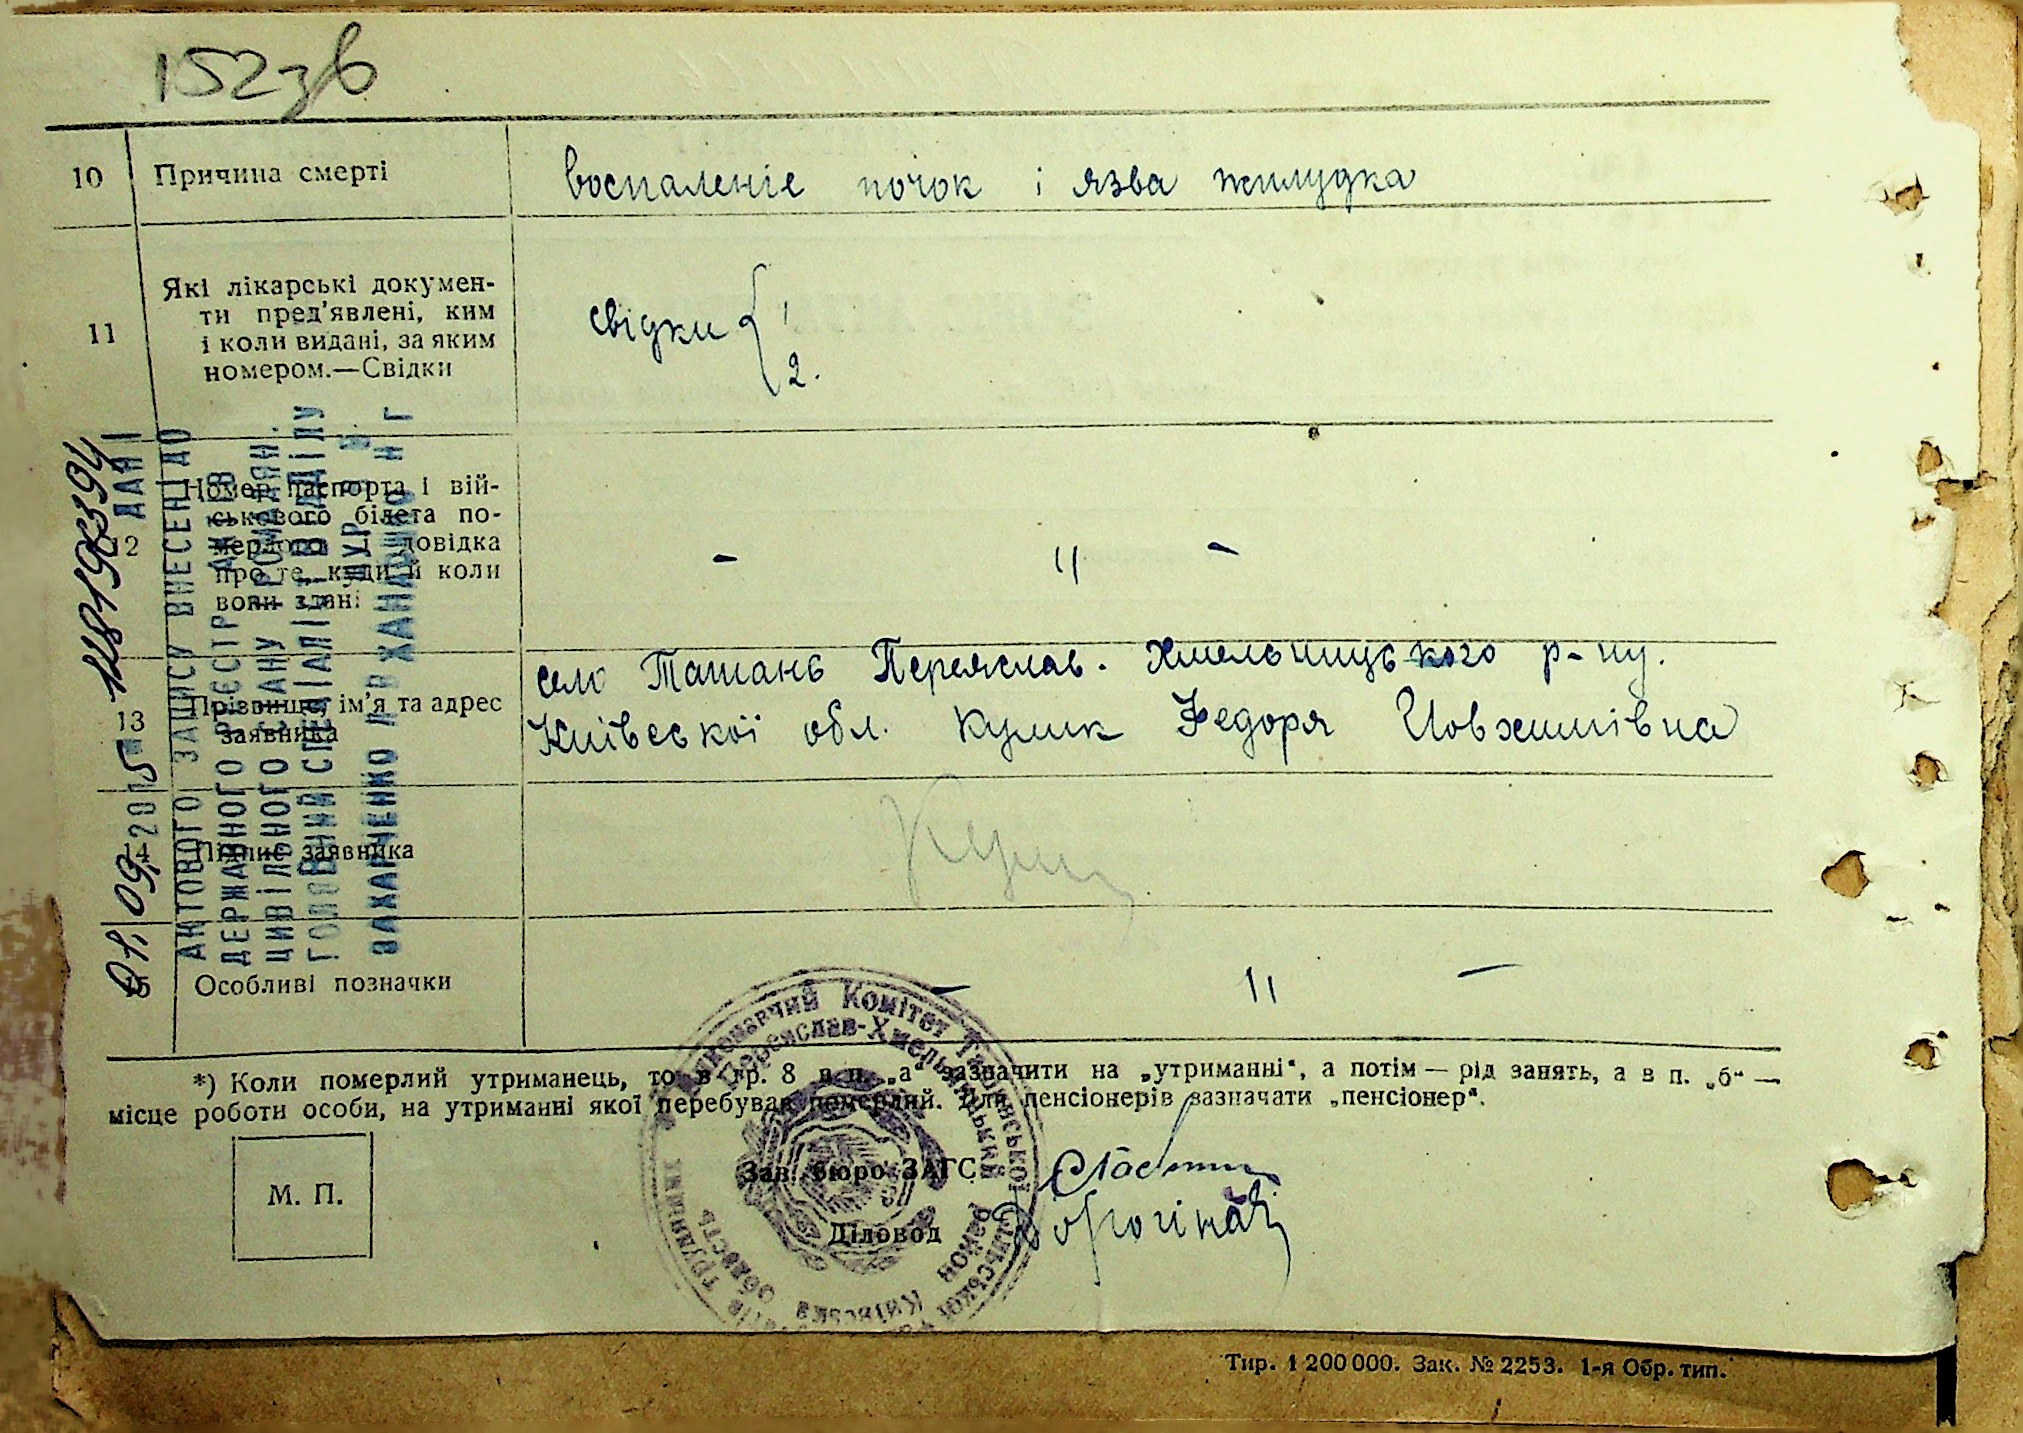 152зв
10 Причина смерті воспаленіє почок і язва жилудка
11 Які лікарські докумен-
ти пред'явлені, ким
і коли видані, за яким
номером.—Свідки
свідки { 1
2.
12 Номер паспорта і вій-
ськового білета по-
мерлого і довідка
про те, куди й коли
вони здані
- " -
село Ташань Переяслав. Хмельницького р-ну.
13 Прізвище, ім'я та адрес
заявника
Київської обл. Кулик Федоря Йовхимівна
14 Підпис заявника
15 Особливі позначки - " -
*) Коли померлий утриманець, то в гр. 8 в п. „а" зазначити на „утриманні", а потім — рід занять, а в п. „б" —
місце роботи особи, на утриманні якої перебував померлий. Для пенсіонерів зазначати „пенсіонер".
М. П.
Зав. бюро ЗАГС
Діловод
Виконавчий Комітет Ташанської сільської
Переяслав-Хмельницький район Київська область
Тир. 1 200 000. Зак. № 2253. 1-я Обр. тип.
ДАНІ
АКТОВОГО ЗАПИСУ ВНЕСЕНІ ДО
ДЕРЖАВНОГО РЕЄСТРУ АКТІВ
ЦИВІЛЬНОГО СТАНУ ГРОМАДЯН.
ГОЛОВНИЙ СПЕЦІАЛІСТ ВІДДІЛУ
ЗАХАРЧЕНКО
01. 09. 2015